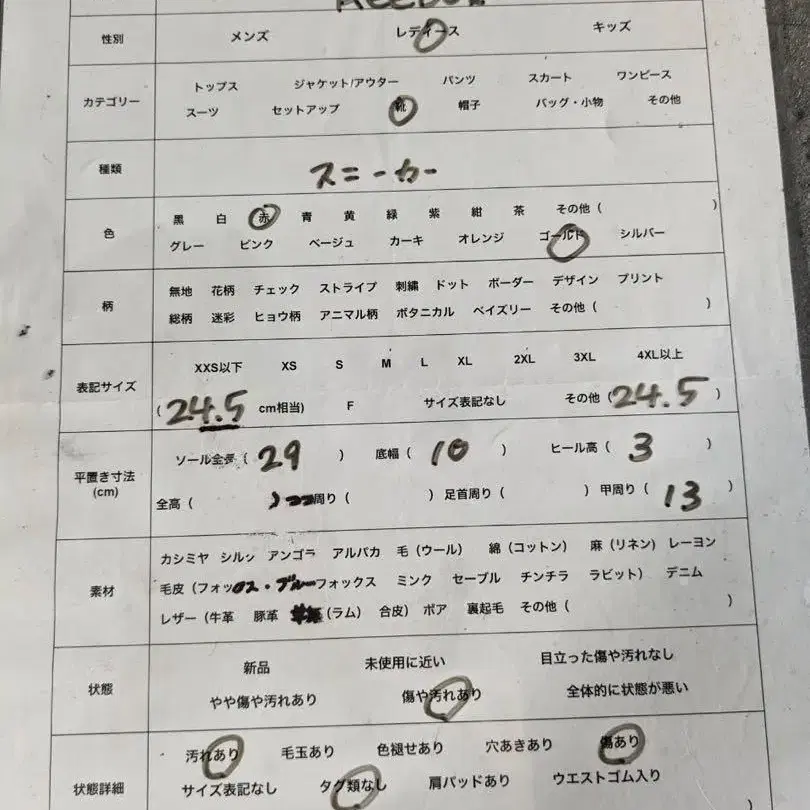 REEBOK
性別 メンズ レディース キッズ
カテゴリー トップス ジャケット/アウター パンツ スカート ワンピース
スーツ セットアップ 靴 帽子 バッグ・小物 その他
種類 スニーカー
色 黒 白 赤 青 黄 緑 紫 紺 茶 その他 ( )
グレー ピンク ベージュ カーキ オレンジ ゴールド シルバー
柄 無地 花柄 チェック ストライプ 刺繍 ドット ボーダー デザイン プリント
総柄 迷彩 ヒョウ柄 アニマル柄 ボタニカル ペイズリー その他 ( )
表記サイズ XXS以下 XS S M L XL 2XL 3XL 4XL以上
(24.5 cm相当) F サイズ表記なし その他 (24.5)
平置き寸法 (cm) ソール全長 ( 29 ) 底幅 ( 10 ) ヒール高 ( 3 )
全高 ( ) 周り ( ) 足首周り ( ) 甲周り ( 13 )
素材 カシミヤ シルク アンゴラ アルパカ 毛 (ウール) 綿 (コットン) 麻 (リネン) レーヨン
毛皮 (フォックス・ブルーフォックス ミンク セーブル チンチラ ラビット) デニム
レザー (牛革 豚革 (ラム) 合皮) ボア 裏起毛 その他 ( )
状態 新品 未使用に近い 目立った傷や汚れなし
やや傷や汚れあり 傷や汚れあり 全体的に状態が悪い
状態詳細 汚れあり 毛玉あり 色褪せあり 穴あきあり 傷あり
サイズ表記なし タグ類なし 肩パッドあり ウエストゴム入り
)